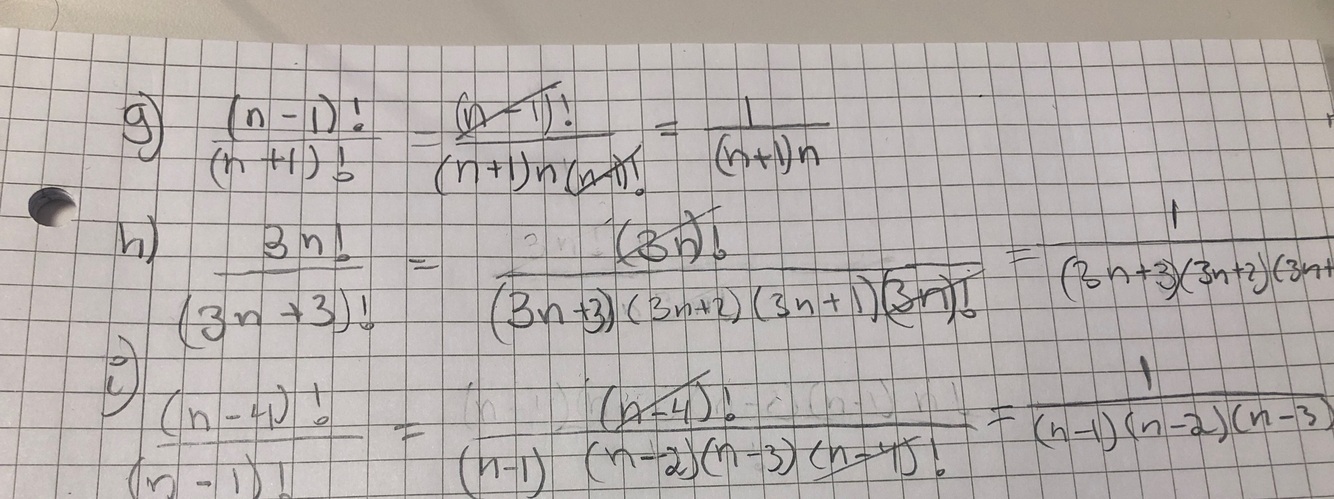 g) (n-1)!/(n+1)! = (n-1)!/((n+1)n(n-1)!) = 1/((n+1)n)
h) 3n!/(3n+3)! = (3n)!/((3n+3)(3n+2)(3n+1)(3n)!) = 1/((3n+3)(3n+2)(3n+
i) (n-4)!/(n-1)! = (n-4)!/((n-1)(n-2)(n-3)(n-4)!) = 1/((n-1)(n-2)(n-3)